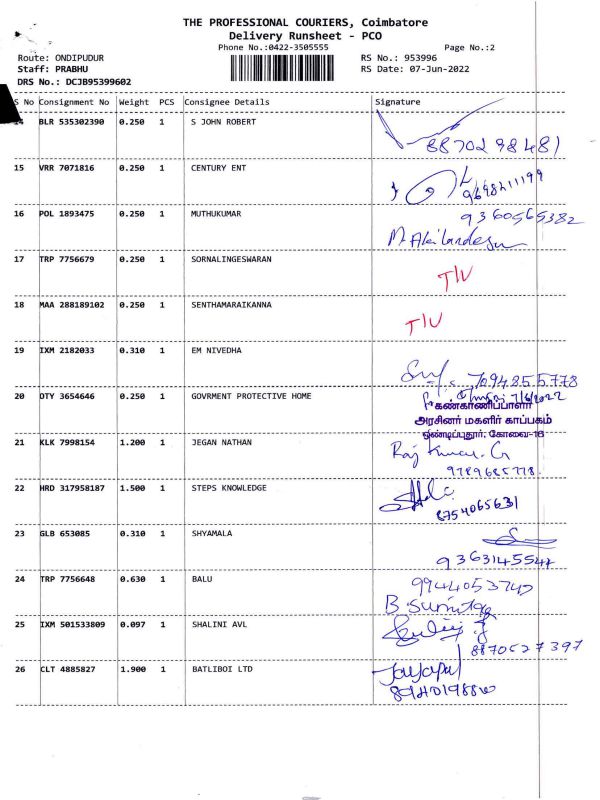 THE PROFESSIONAL COURIERS, Coimbatore
Delivery Runsheet - PCO
Phone No.:0422-3505555 Page No.:2
Route: ONDIPUDUR RS No.: 953996
Staff: PRABHU RS Date: 07-Jun-2022
DRS No.: DCJB95399602
S No Consignment No Weight PCS Consignee Details Signature
14 BLR 535302390 0.250 1 S JOHN ROBERT
8870298481
15 VRR 7071816 0.250 1 CENTURY ENT
9698211199
16 POL 1893475 0.250 1 MUTHUKUMAR 9360565382
17 TRP 7756679 0.250 1 SORNALINGESWARAN
T/U
18 MAA 288189102 0.250 1 SENTHAMARAIKANNA
T/U
19 IXM 2182033 0.310 1 EM NIVEDHA
7094855778
20 OTY 3654646 0.250 1 GOVRMENT PROTECTIVE HOME 7/6/2022
கண்காணிப்பாளர்
அரசினர் மகளிர் காப்பகம்
ஒண்டிப்புதூர், கோவை-16
21 KLK 7998154 1.200 1 JEGAN NATHAN
Raj Kumar. G
9789685778.
22 HRD 317958187 1.500 1 STEPS KNOWLEDGE
8754065631
23 GLB 653085 0.310 1 SHYAMALA
9363145547
24 TRP 7756648 0.630 1 BALU
25 IXM 501533809 0.097 1 SHALINI AVL
8870527397
26 CLT 4885827 1.900 1 BATLIBOI LTD
Jayapal